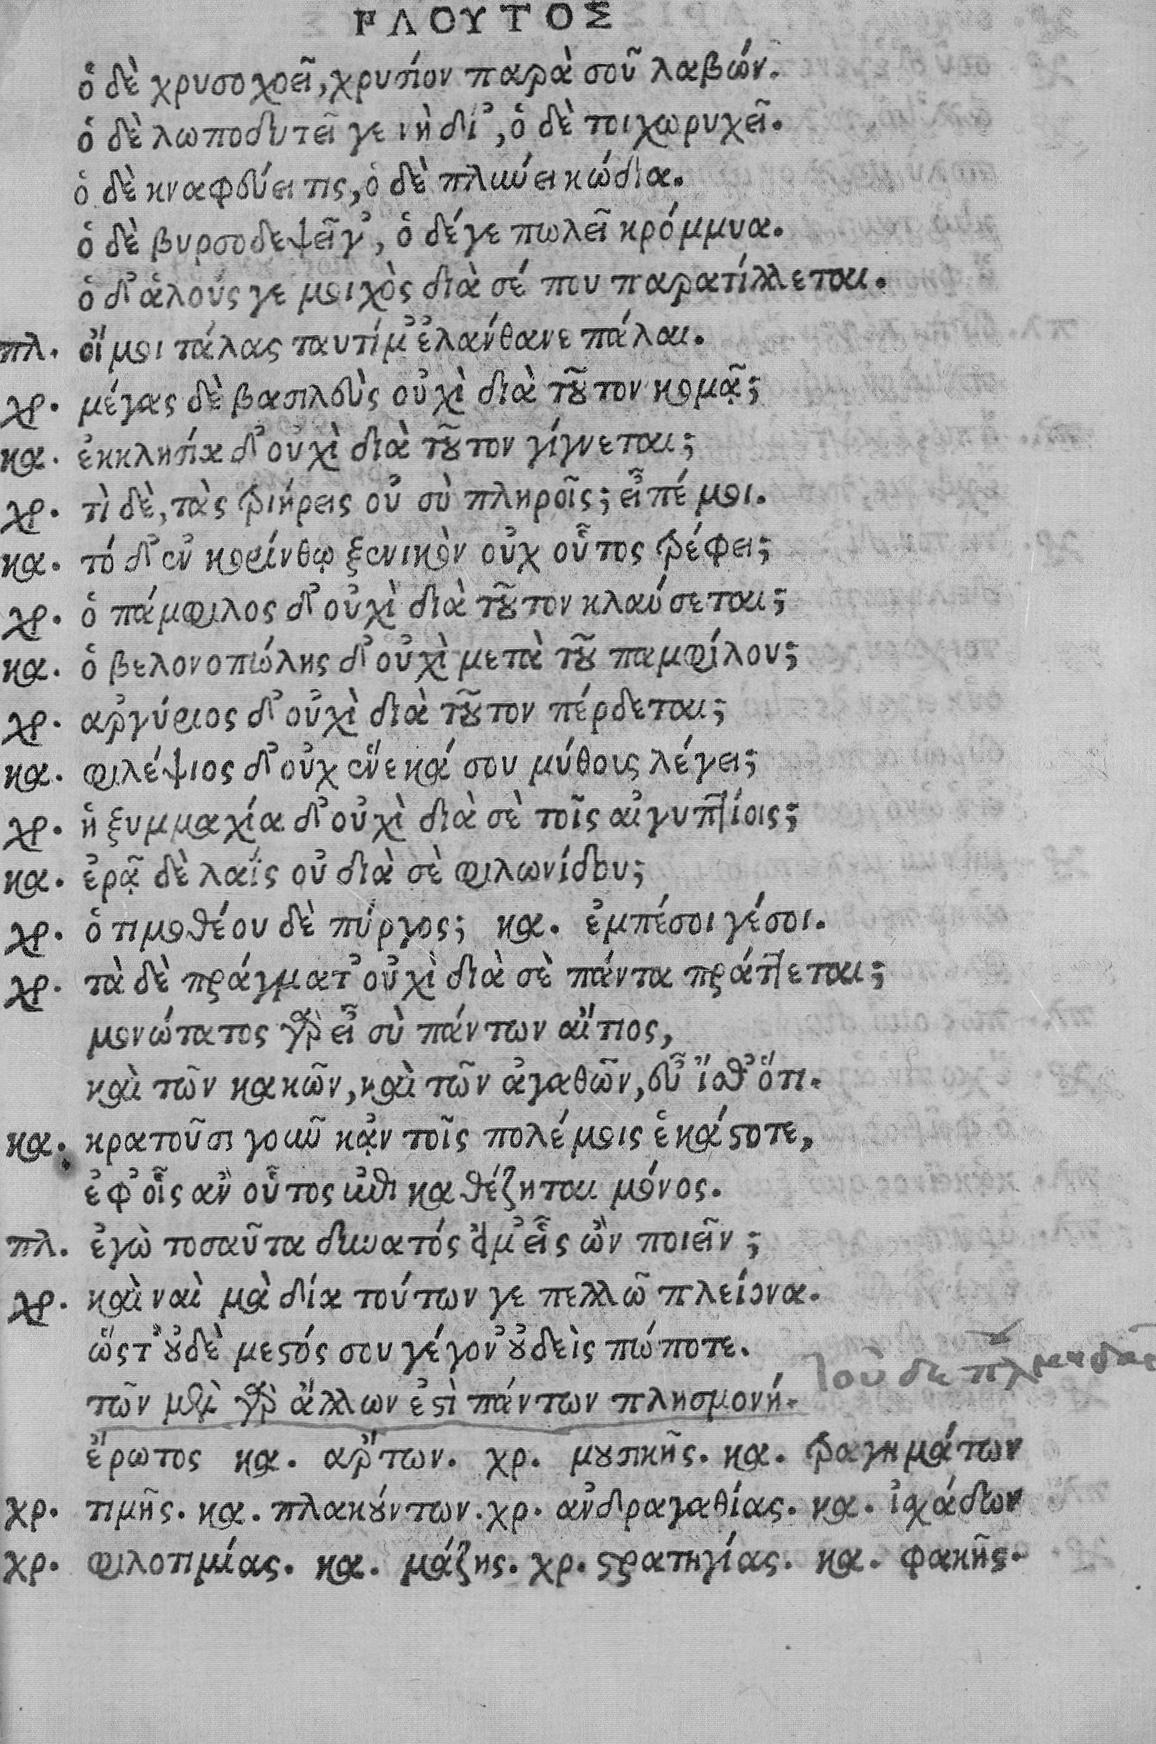 ΠΛΟΥΤΟΣ
ὁ δὲ χρυσοχοεῖ, χρυσίον παρὰ σοῦ λαβών.
ὁ δὲ λωποδυτεῖ γε νὴ δί', ὁ δὲ τοιχωρυχεῖ.
ὁ δὲ κναφεύει τις, ὁ δὲ πλύνει κώδια.
ὁ δὲ βυρσοδεψεῖ γ', ὁ δέ γε πωλεῖ κρόμμυα.
ὁ δ' ἁλούς γε μοιχὸς διὰ σέ που παρατίλλεται.
πλ. οἴμοι τάλας ταυτί μ' ἐλάνθανε πάλαι.
χρ. μέγας δὲ βασιλεὺς οὐχὶ διὰ τοῦτον κομᾷ;
κα. ἐκκλησία δ' οὐχὶ διὰ τοῦτον γίγνεται;
χρ. τὶ δὲ, τὰς τριήρεις οὐ σὺ πληροῖς; εἶπέ μοι.
κα. τό δ' ἐν κορίνθῳ ξενικὸν οὐχ οὗτος τρέφει;
χρ. ὁ πάμφιλος δ' οὐχὶ διὰ τοῦτον κλαύσεται;
κα. ὁ βελονοπώλης δ' οὐχὶ μετὰ τοῦ παμφίλου;
χρ. ἀργύριος δ' οὐχὶ διὰ τοῦτον πέρδεται;
κα. φιλέψιος δ' οὐχ ἕνεκά σου μύθους λέγει;
χρ. ἡ ξυμμαχία δ' οὐχὶ διὰ σὲ τοῖς αἰγυπτίοις;
κα. ἐρᾷ δὲ λαΐς οὐ διὰ σὲ φιλωνίδου;
χρ. ὁ τιμοθέου δὲ πύργος; κα. ἐμπέσοι γέ σοι.
χρ. τὰ δὲ πράγματ' οὐχὶ διὰ σὲ πάντα πράττεται;
μονώτατος γὰρ εἶ σὺ πάντων αἴτιος,
καὶ τῶν κακῶν, καὶ τῶν ἀγαθῶν, εὖ ἴσθ' ὅτι.
κα. κρατοῦσι γοῦν κἀν τοῖς πολέμοις ἑκάστοτε,
ἐφ' οἷς ἂν οὗτος ἐπικαθέζηται μόνος.
πλ. ἐγὼ τοσαῦτα δυνατός εἰμ' εἷς ὢν ποιεῖν;
χρ. καὶ ναὶ μὰ δία τούτων γε πελλῶ πλείονα.
ὥστ' οὐδὲ μεστός σου γέγον' οὐδεὶς πώποτε.
τῶν μὲν γὰρ ἄλλων ἐστὶ πάντων πλησμονή.
ἔρωτος κα. ἄρτων. χρ. μουσικῆς. κα. τραγημάτων
χρ. τιμῆς. κα. πλακούντων. χρ. ἀνδραγαθίας. κα. ἰσχάδων
χρ. φιλοτιμίας. κα. μάζης. χρ. στρατηγίας. κα. φακῆς.